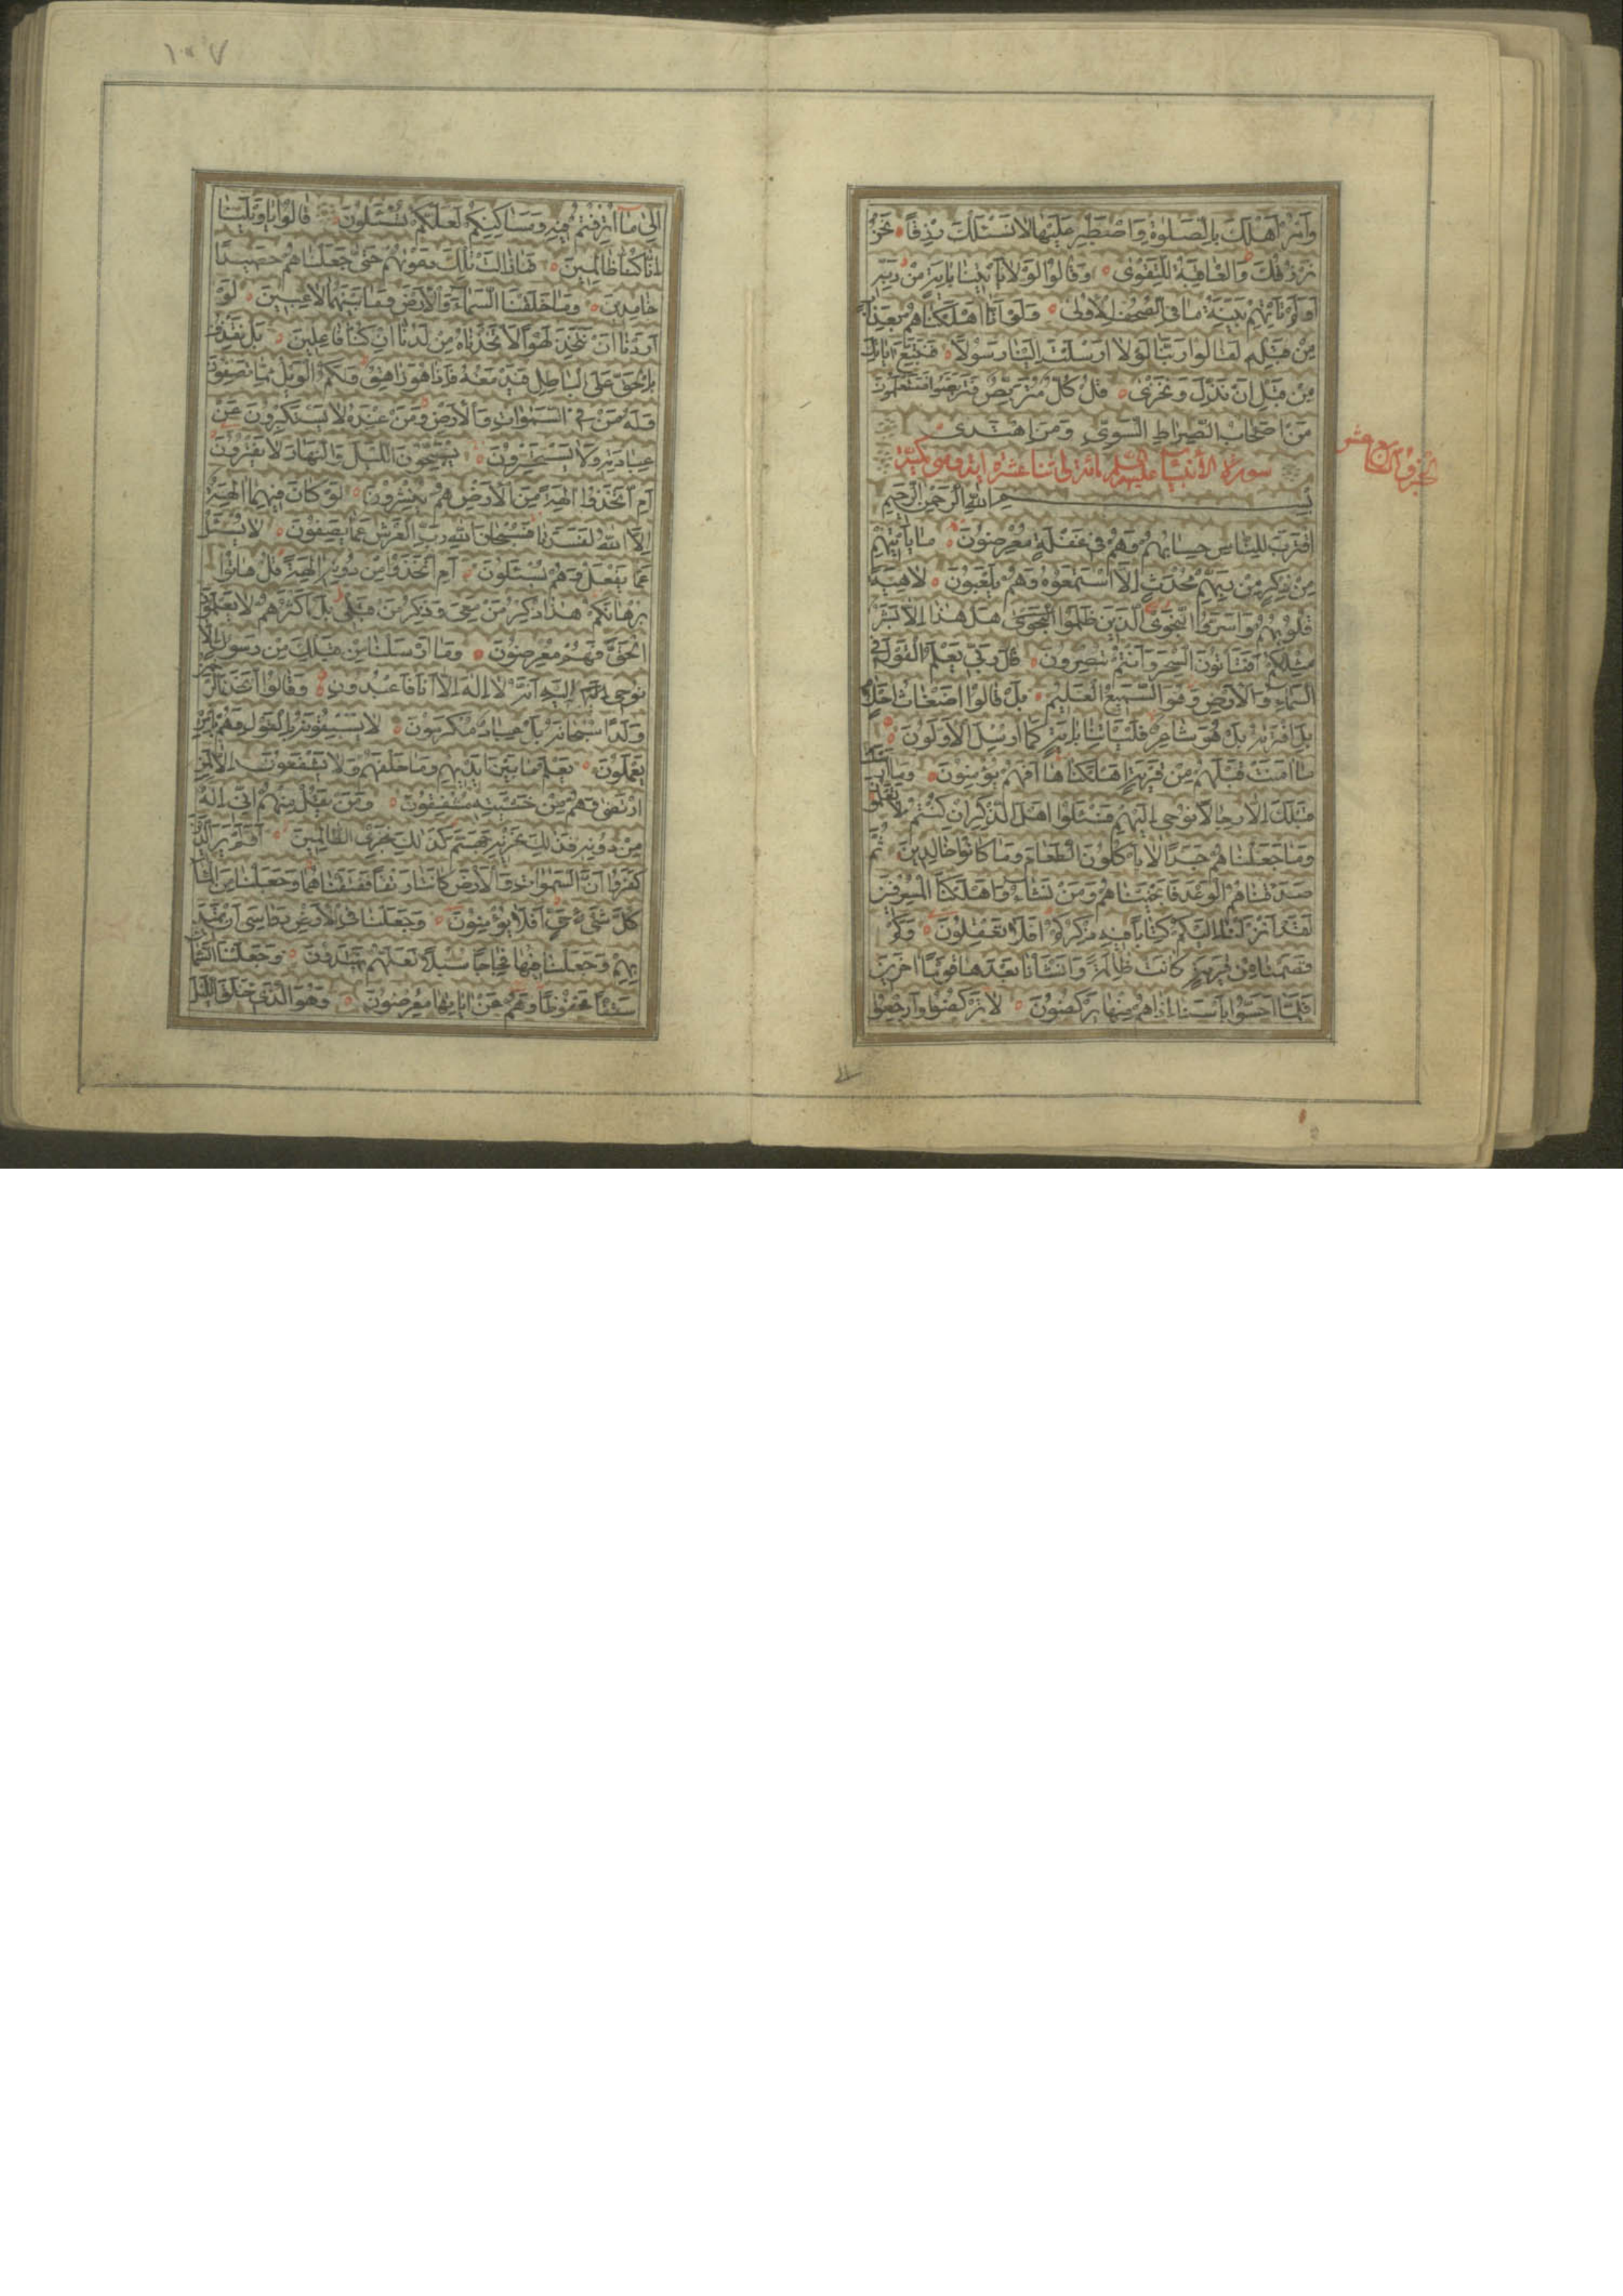 وَأْمُرْ أَهْلَكَ بِالصَّلٰوةِ وَاصْطَبِرْ عَلَيْهَا لَا نَسْئَلُكَ رِزْقًا نَحْنُ
نَرْزُقُكَ وَالْعَاقِبَةُ لِلتَّقْوٰى وَقَالُوا لَوْلَا يَأْتِينَا بِاٰيَةٍ مِنْ رَبِّهِ
أَوَلَمْ تَأْتِهِمْ بَيِّنَةُ مَا فِي الصُّحُفِ الْأُولٰى وَلَوْ أَنَّا أَهْلَكْنَاهُمْ بِعَذَابٍ
مِنْ قَبْلِهِ لَقَالُوا رَبَّنَا لَوْلَا أَرْسَلْتَ إِلَيْنَا رَسُولًا فَنَتَّبِعَ اٰيَاتِكَ
مِنْ قَبْلِ أَنْ نَذِلَّ وَنَخْزٰى قُلْ كُلٌّ مُتَرَبِّصٌ فَتَرَبَّصُوا فَسَتَعْلَمُونَ
مَنْ أَصْحَابُ الصِّرَاطِ السَّوِيِّ وَمَنِ اهْتَدٰى
سورة الأنبياء عليهم السلم مائة واثنا عشرة اية وهي مكية
الجزؤ السابع عشر
بِسْمِ اللهِ الرَّحْمٰنِ الرَّحِيمِ
اقْتَرَبَ لِلنَّاسِ حِسَابُهُمْ وَهُمْ فِي غَفْلَةٍ مُعْرِضُونَ مَا يَأْتِيهِمْ
مِنْ ذِكْرٍ مِنْ رَبِّهِمْ مُحْدَثٍ إِلَّا اسْتَمَعُوهُ وَهُمْ يَلْعَبُونَ لَاهِيَةً
قُلُوبُهُمْ وَأَسَرُّوا النَّجْوَى الَّذِينَ ظَلَمُوا هَلْ هٰذَا إِلَّا بَشَرٌ
مِثْلُكُمْ أَفَتَأْتُونَ السِّحْرَ وَأَنْتُمْ تُبْصِرُونَ قُلْ رَبِّي يَعْلَمُ الْقَوْلَ فِي
السَّمَاءِ وَالْأَرْضِ وَهُوَ السَّمِيعُ الْعَلِيمُ بَلْ قَالُوا أَضْغَاثُ أَحْلَامٍ
بَلِ افْتَرَاهُ بَلْ هُوَ شَاعِرٌ فَلْيَأْتِنَا بِاٰيَةٍ كَمَا أُرْسِلَ الْأَوَّلُونَ
مَا اٰمَنَتْ قَبْلَهُمْ مِنْ قَرْيَةٍ أَهْلَكْنَاهَا أَفَهُمْ يُؤْمِنُونَ وَمَا أَرْسَلْنَا
قَبْلَكَ إِلَّا رِجَالًا نُوحِي إِلَيْهِمْ فَسْئَلُوا أَهْلَ الذِّكْرِ إِنْ كُنْتُمْ لَا تَعْلَمُونَ
وَمَا جَعَلْنَاهُمْ جَسَدًا لَا يَأْكُلُونَ الطَّعَامَ وَمَا كَانُوا خَالِدِينَ ثُمَّ
صَدَقْنَاهُمُ الْوَعْدَ فَأَنْجَيْنَاهُمْ وَمَنْ نَشَاءُ وَأَهْلَكْنَا الْمُسْرِفِينَ
لَقَدْ أَنْزَلْنَا إِلَيْكُمْ كِتَابًا فِيهِ ذِكْرُكُمْ أَفَلَا تَعْقِلُونَ وَكَمْ
قَصَمْنَا مِنْ قَرْيَةٍ كَانَتْ ظَالِمَةً وَأَنْشَأْنَا بَعْدَهَا قَوْمًا اٰخَرِينَ
فَلَمَّا أَحَسُّوا بَأْسَنَا إِذَا هُمْ مِنْهَا يَرْكُضُونَ لَا تَرْكُضُوا وَارْجِعُوا
١٠٧
إِلٰى مَا أُتْرِفْتُمْ فِيهِ وَمَسَاكِنِكُمْ لَعَلَّكُمْ تُسْئَلُونَ قَالُوا يَا وَيْلَنَا
إِنَّا كُنَّا ظَالِمِينَ فَمَا زَالَتْ تِلْكَ دَعْوٰيهُمْ حَتّٰى جَعَلْنَاهُمْ حَصِيدًا
خَامِدِينَ وَمَا خَلَقْنَا السَّمَاءَ وَالْأَرْضَ وَمَا بَيْنَهُمَا لَاعِبِينَ لَوْ
أَرَدْنَا أَنْ نَتَّخِذَ لَهْوًا لَاتَّخَذْنَاهُ مِنْ لَدُنَّا إِنْ كُنَّا فَاعِلِينَ بَلْ نَقْذِفُ
بِالْحَقِّ عَلَى الْبَاطِلِ فَيَدْمَغُهُ فَإِذَا هُوَ زَاهِقٌ وَلَكُمُ الْوَيْلُ مِمَّا تَصِفُونَ
وَلَهُ مَنْ فِي السَّمٰوَاتِ وَالْأَرْضِ وَمَنْ عِنْدَهُ لَا يَسْتَكْبِرُونَ عَنْ
عِبَادَتِهِ وَلَا يَسْتَحْسِرُونَ يُسَبِّحُونَ اللَّيْلَ وَالنَّهَارَ لَا يَفْتُرُونَ
أَمِ اتَّخَذُوا اٰلِهَةً مِنَ الْأَرْضِ هُمْ يُنْشِرُونَ لَوْ كَانَ فِيهِمَا اٰلِهَةٌ
إِلَّا اللهُ لَفَسَدَتَا فَسُبْحَانَ اللهِ رَبِّ الْعَرْشِ عَمَّا يَصِفُونَ لَا يُسْئَلُ
عَمَّا يَفْعَلُ وَهُمْ يُسْئَلُونَ أَمِ اتَّخَذُوا مِنْ دُونِهِ اٰلِهَةً قُلْ هَاتُوا
بُرْهَانَكُمْ هٰذَا ذِكْرُ مَنْ مَعِيَ وَذِكْرُ مَنْ قَبْلِي بَلْ أَكْثَرُهُمْ لَا يَعْلَمُونَ
الْحَقَّ فَهُمْ مُعْرِضُونَ وَمَا أَرْسَلْنَا مِنْ قَبْلِكَ مِنْ رَسُولٍ إِلَّا
نُوحِي إِلَيْهِ أَنَّهُ لَا إِلٰهَ إِلَّا أَنَا فَاعْبُدُونِ وَقَالُوا اتَّخَذَ الرَّحْمٰنُ
وَلَدًا سُبْحَانَهُ بَلْ عِبَادٌ مُكْرَمُونَ لَا يَسْبِقُونَهُ بِالْقَوْلِ وَهُمْ بِأَمْرِهِ
يَعْمَلُونَ يَعْلَمُ مَا بَيْنَ أَيْدِيهِمْ وَمَا خَلْفَهُمْ وَلَا يَشْفَعُونَ إِلَّا لِمَنِ
ارْتَضٰى وَهُمْ مِنْ خَشْيَتِهِ مُشْفِقُونَ وَمَنْ يَقُلْ مِنْهُمْ إِنِّي إِلٰهٌ
مِنْ دُونِهِ فَذٰلِكَ نَجْزِيهِ جَهَنَّمَ كَذٰلِكَ نَجْزِي الظَّالِمِينَ أَوَلَمْ يَرَ الَّذِينَ
كَفَرُوا أَنَّ السَّمٰوَاتِ وَالْأَرْضَ كَانَتَا رَتْقًا فَفَتَقْنَاهُمَا وَجَعَلْنَا مِنَ الْمَاءِ
كُلَّ شَيْءٍ حَيٍّ أَفَلَا يُؤْمِنُونَ وَجَعَلْنَا فِي الْأَرْضِ رَوَاسِيَ أَنْ تَمِيدَ
بِهِمْ وَجَعَلْنَا فِيهَا فِجَاجًا سُبُلًا لَعَلَّهُمْ يَهْتَدُونَ وَجَعَلْنَا السَّمَاءَ
سَقْفًا مَحْفُوظًا وَهُمْ عَنْ اٰيَاتِهَا مُعْرِضُونَ وَهُوَ الَّذِي خَلَقَ اللَّيْلَ